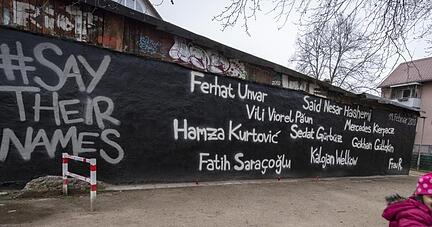 #SAY
THEIR
NAMES
Ferhat Unvar
Vili Viorel Păun
Hamza Kurtović
Fatih Saraçoğlu
Said Nesar Hashemi
Mercedes Kierpacz
Sedat Gürbüz
Gökhan Gültekin
Kaloyan Velkov